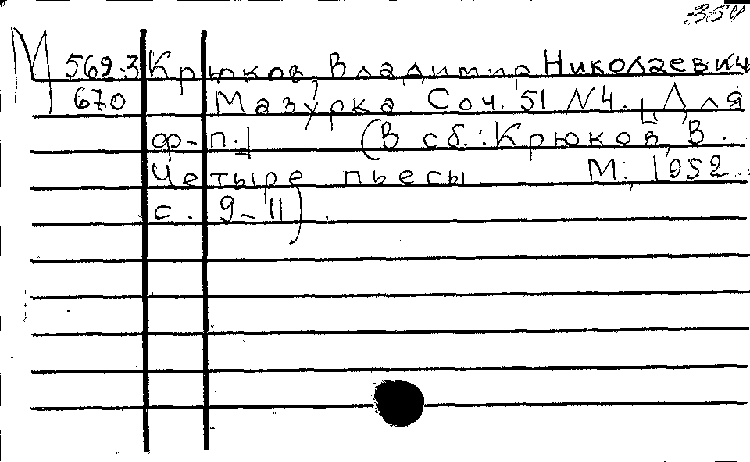 350
М 562.3 Крюков, Владимир Николаевич
670 Мазурка Соч. 51 N4. [Для
ф-п.] (В сб.: Крюков, В.
Четыре пьесы М., 1952.
с. 9-11).